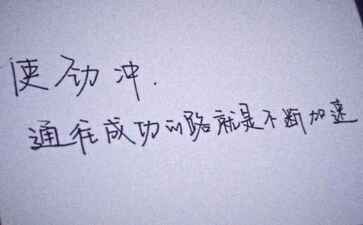 使劲冲.
通往成功的路就是不断加速